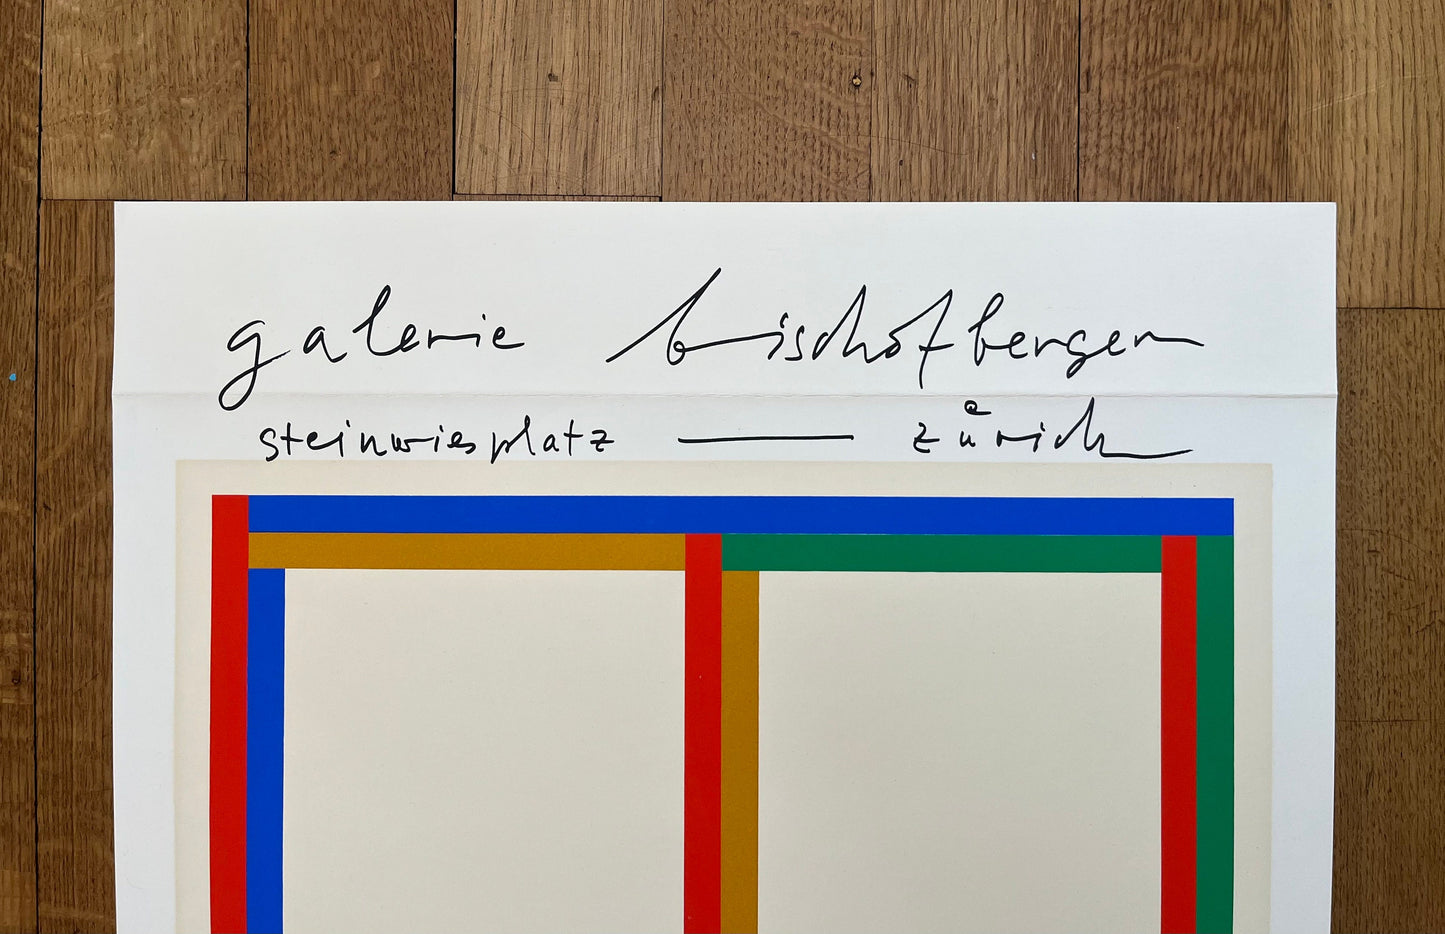 galerie bischofberger
steinwiesplatz — zürich